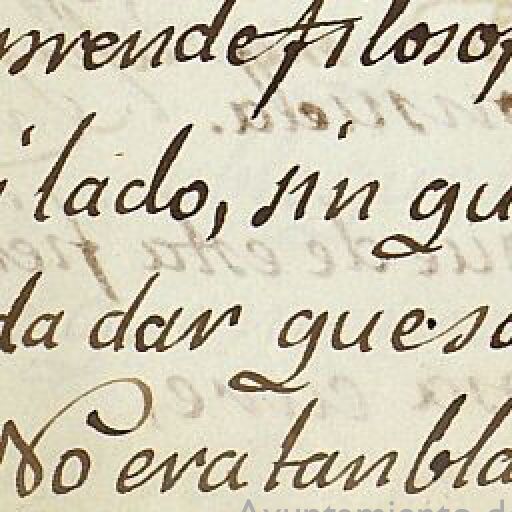 prende filosof
i lado, sin qu
da dar que so
No era tan bla
Ayuntamiento de